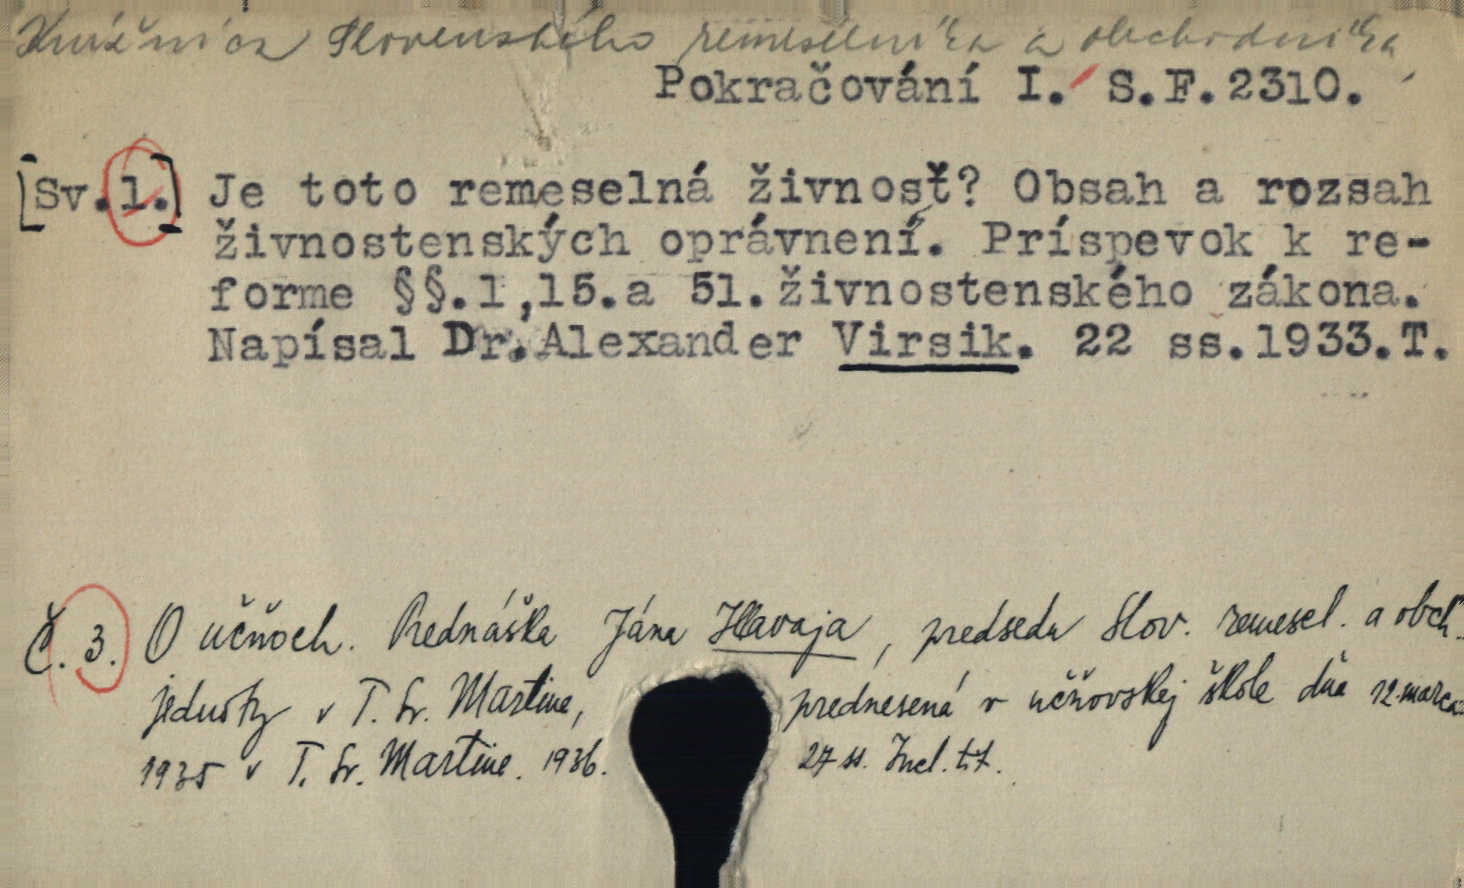 Knižnica Slovenského remeselníka a obchodníka
Pokračování I. S.F.2310.
[Sv.1.] Je toto remeselná živnosť? Obsah a rozsah
živnostenských oprávnení. Príspevok k re-
forme §§.1,15.a 51.živnostenského zákona.
Napísal Dr.Alexander Virsik. 22 ss.1933.T.
Č. 3. O učňoch. Prednáška Jána Hlavaja, predsedu Slov. remesel. a obch.
jednoty v T. Sv. Martine, prednesená v učňovskej škole dňa 12.marca
1935 v T. Sv. Martine. 1936. 27 ss. Incl. tit.